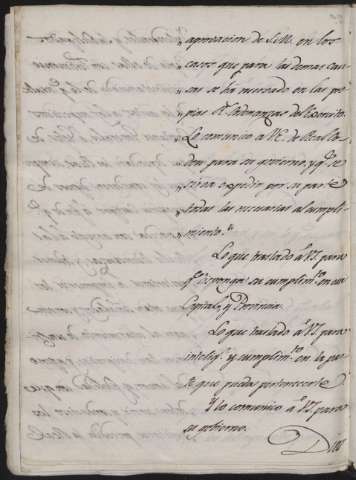 aprovacion de S.M. en los
casos que para las demas cau-
sas se há mandado en las pro-
pias Rs. Ordenanzas del Exercito.
Lo comunico á V.E. de Real or-
den para su govierno, y qe. se
sirva expedir por su parte
todas las necesarias al cumpli-
miento.
Lo que traslado á V. para
qe. disponga su cumplimto. en su
Capital, y Provincia.
Lo que traslado á V. para
intelija. y cumplimto. en la par-
te que pueda pertenecerle
Y lo comunico á V. para
su govierno.
Dios